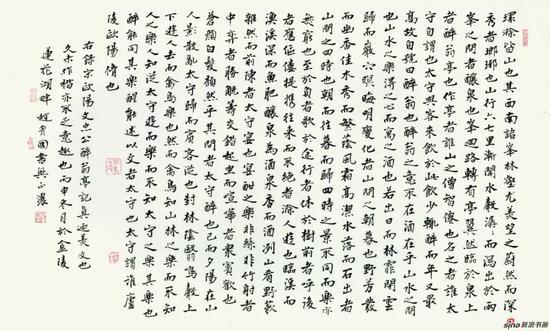 環滁皆山也其西南諸峯林壑尤美望之蔚然而深
秀者瑯琊也山行六七里漸聞水聲潺潺而瀉出於兩
峯之間者釀泉也峯回路轉有亭翼然臨於泉上
者醉翁亭也作亭者誰山之僧智僊也名之者誰太
守自謂也太守與客來飲於此飲少輒醉而年又最
高故自號曰醉翁也醉翁之意不在酒在乎山水之間
也山水之樂得之心而寓之酒也若夫日出而林霏開雲
歸而巖穴暝晦明變化者山間之朝暮也野芳發
而幽香佳木秀而繁陰風霜高潔水落而石出者
山間之四時也朝而往暮而歸四時之景不同而樂亦
無窮也至於負者歌於途行者休於樹前者呼後
者應傴僂提携往來而不絕者滁人遊也臨溪而
漁溪深而魚肥釀泉為酒泉香而酒洌山肴野蔌
雜然而前陳者太守宴也宴酣之樂非絲非竹射者
中弈者勝觥籌交錯起坐而諠譁者眾賓歡也
蒼顏白髮頹然乎其間者太守醉也已而夕陽在山
人影散亂太守歸而賓客從也樹林陰翳鳴聲上
下遊人去而禽鳥樂也然而禽鳥知山林之樂而不知
人之樂人知從太守遊而樂而不知太守之樂其樂也
醉能同其樂醒能述以文者太守也太守謂誰廬
陵歐陽脩也
右錄宋歐陽文忠公醉翁亭記真迺美文也
久未作楷亦不之意趣也丙申冬月於金陵
蓮花湖畔趙
sina 新浪书画